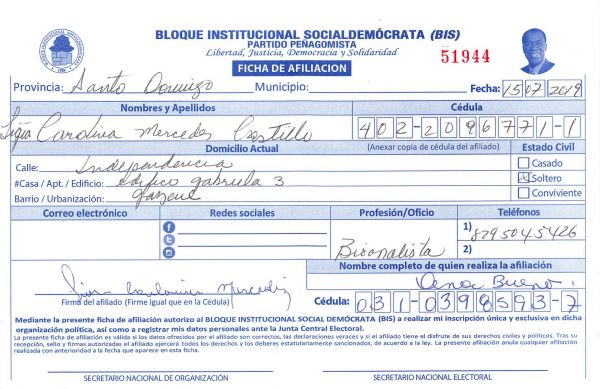 BLOQUE INSTITUCIONAL SOCIALDEMÓCRATA (BIS)
PARTIDO PEÑAGOMISTA
Libertad, Justicia, Democracia y Solidaridad
51944
FICHA DE AFILIACION
Provincia: Santo Domingo Municipio: Fecha: 15/07/2019
Nombres y Apellidos Cédula
Carolina Mercedes Castillo 402-2096771-1
Domicilio Actual (Anexar copia de cédula del afiliado) Estado Civil
Calle: Independencia Casado
#Casa / Apt. / Edificio: edifico gabriela 3 Soltero
Barrio / Urbanización: gazcue Conviviente
Correo electrónico Redes sociales Profesión/Oficio Teléfonos
1) 8295045426
Bioanalista 2)
Nombre completo de quien realiza la afiliación
Bueno
Firma del afiliado (Firme igual que en la Cédula) Cédula: 031-0398593-7
Mediante la presente ficha de afiliación autorizo al BLOQUE INSTITUCIONAL SOCIAL DEMÓCRATA (BIS) a realizar mi inscripción única y exclusiva en dicha
organización política, así como a registrar mis datos personales ante la Junta Central Electoral.
La presente ficha de afiliación es válida si los datos ofrecidos por el afiliado son correctos, las declaraciones veraces y si el afiliado tiene el disfrute de sus derechos civiles y políticos. Tras su
recepción, sello y firmas autorizadas el afiliado ejercerá todos los derechos y los deberes estatutariamente sancionados, de acuerdo a la ley. La presente afiliación anula cualquier afiliación
realizada con anterioridad a la fecha que aparece en esta ficha.
SECRETARIO NACIONAL DE ORGANIZACIÓN SECRETARIO NACIONAL ELECTORAL